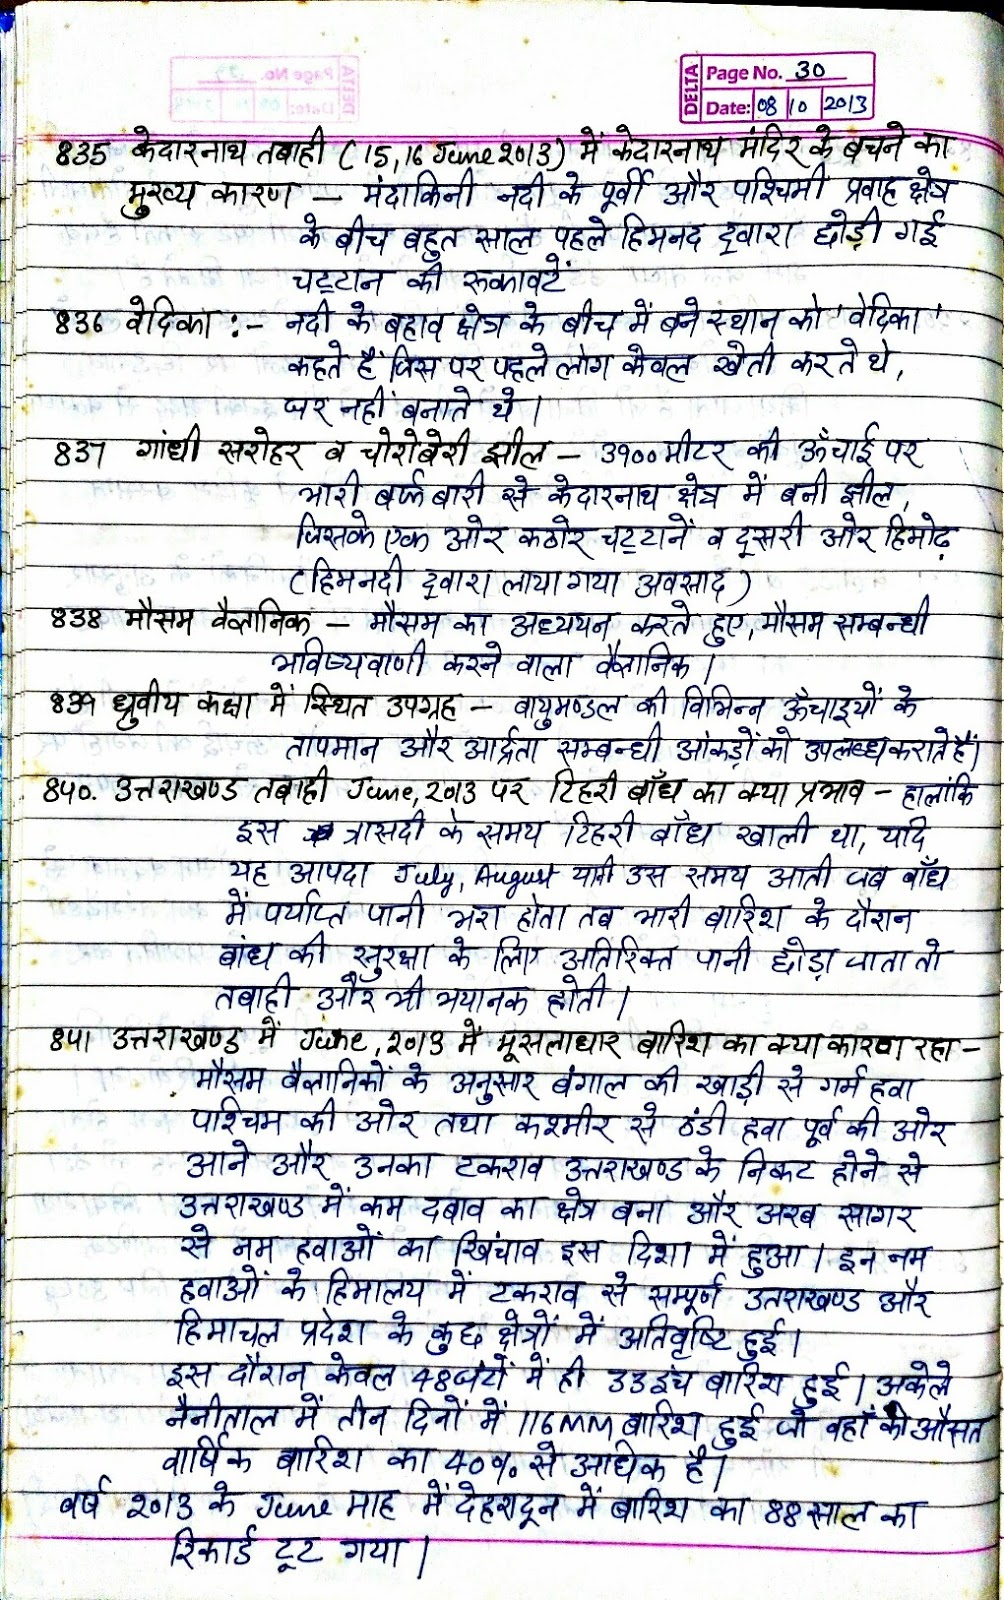 DELTA
Page No. 30
Date: 08 10 2013
835 केदारनाथ तबाही (15,16 June 2013) में केदारनाथ मंदिर के बचने का
मुख्य कारण - मंदाकिनी नदी के पूर्वी और पश्चिमी प्रवाह क्षेत्र
के बीच बहुत साल पहले हिमनद द्वारा छोड़ी गई
चट्टान की रूकावटें
836 वेदिका :- नदी के बहाव क्षेत्र के बीच में बने स्थान को 'वेदिका'
कहते हैं जिस पर पहले लोग केवल खेती करते थे,
घर नहीं बनाते थे।
837 गांधी सरोहर व चोरोबेरी झील - 3900 मीटर की ऊँचाई पर
भारी बर्फ बारी से केदारनाथ क्षेत्र में बनी झील,
जिसके एक ओर कठोर चट्टानें व दूसरी ओर हिमोढ़
(हिमनदी द्वारा लाया गया अवसाद)
838 मौसम वैज्ञानिक - मौसम का अध्ययन करते हुए, मौसम सम्बन्धी
भविष्यवाणी करने वाला वैज्ञानिक।
839 ध्रुवीय कक्षा में स्थित उपग्रह - वायुमण्डल की विभिन्न ऊँचाइयों के
तापमान और आर्द्रता सम्बन्धी आंकड़ों को उपलब्ध कराते हैं।
840. उत्तराखण्ड तबाही June, 2013 पर टिहरी बाँध का क्या प्रभाव - हालांकि
इस त्रासदी के समय टिहरी बाँध खाली था, यदि
यह आपदा July, August यानी उस समय आती जब बाँध
में पर्याप्त पानी भरा होता तब भारी बारिश के दौरान
बांध की सुरक्षा के लिए अतिरिक्त पानी छोड़ा जाता तो
तबाही और भी भयानक होती।
841 उत्तराखण्ड में June, 2013 में मूसलाधार बारिश का क्या कारण रहा -
मौसम वैज्ञानिकों के अनुसार बंगाल की खाड़ी से गर्म हवा
पश्चिम की ओर तथा कश्मीर से ठंडी हवा पूर्व की ओर
आने और उनका टकराव उत्तराखण्ड के निकट होने से
उत्तराखण्ड में कम दबाव का क्षेत्र बना और अरब सागर
से नम हवाओं का खिंचाव इस दिशा में हुआ। इन नम
हवाओं के हिमालय में टकराव से सम्पूर्ण उतराखण्ड और
हिमाचल प्रदेश के कुछ क्षेत्रों में अतिवृष्टि हुई।
इस दौरान केवल 48 घंटों में ही 33 इंच बारिश हुई। अकेले
नैनीताल में तीन दिनों में 116 MM बारिश हुई जो वहाँ की औसत
वार्षिक बारिश का 40% से अधिक है।
वर्ष 2013 के June माह में देहरादून में बारिश का 88 साल का
रिकार्ड टूट गया।